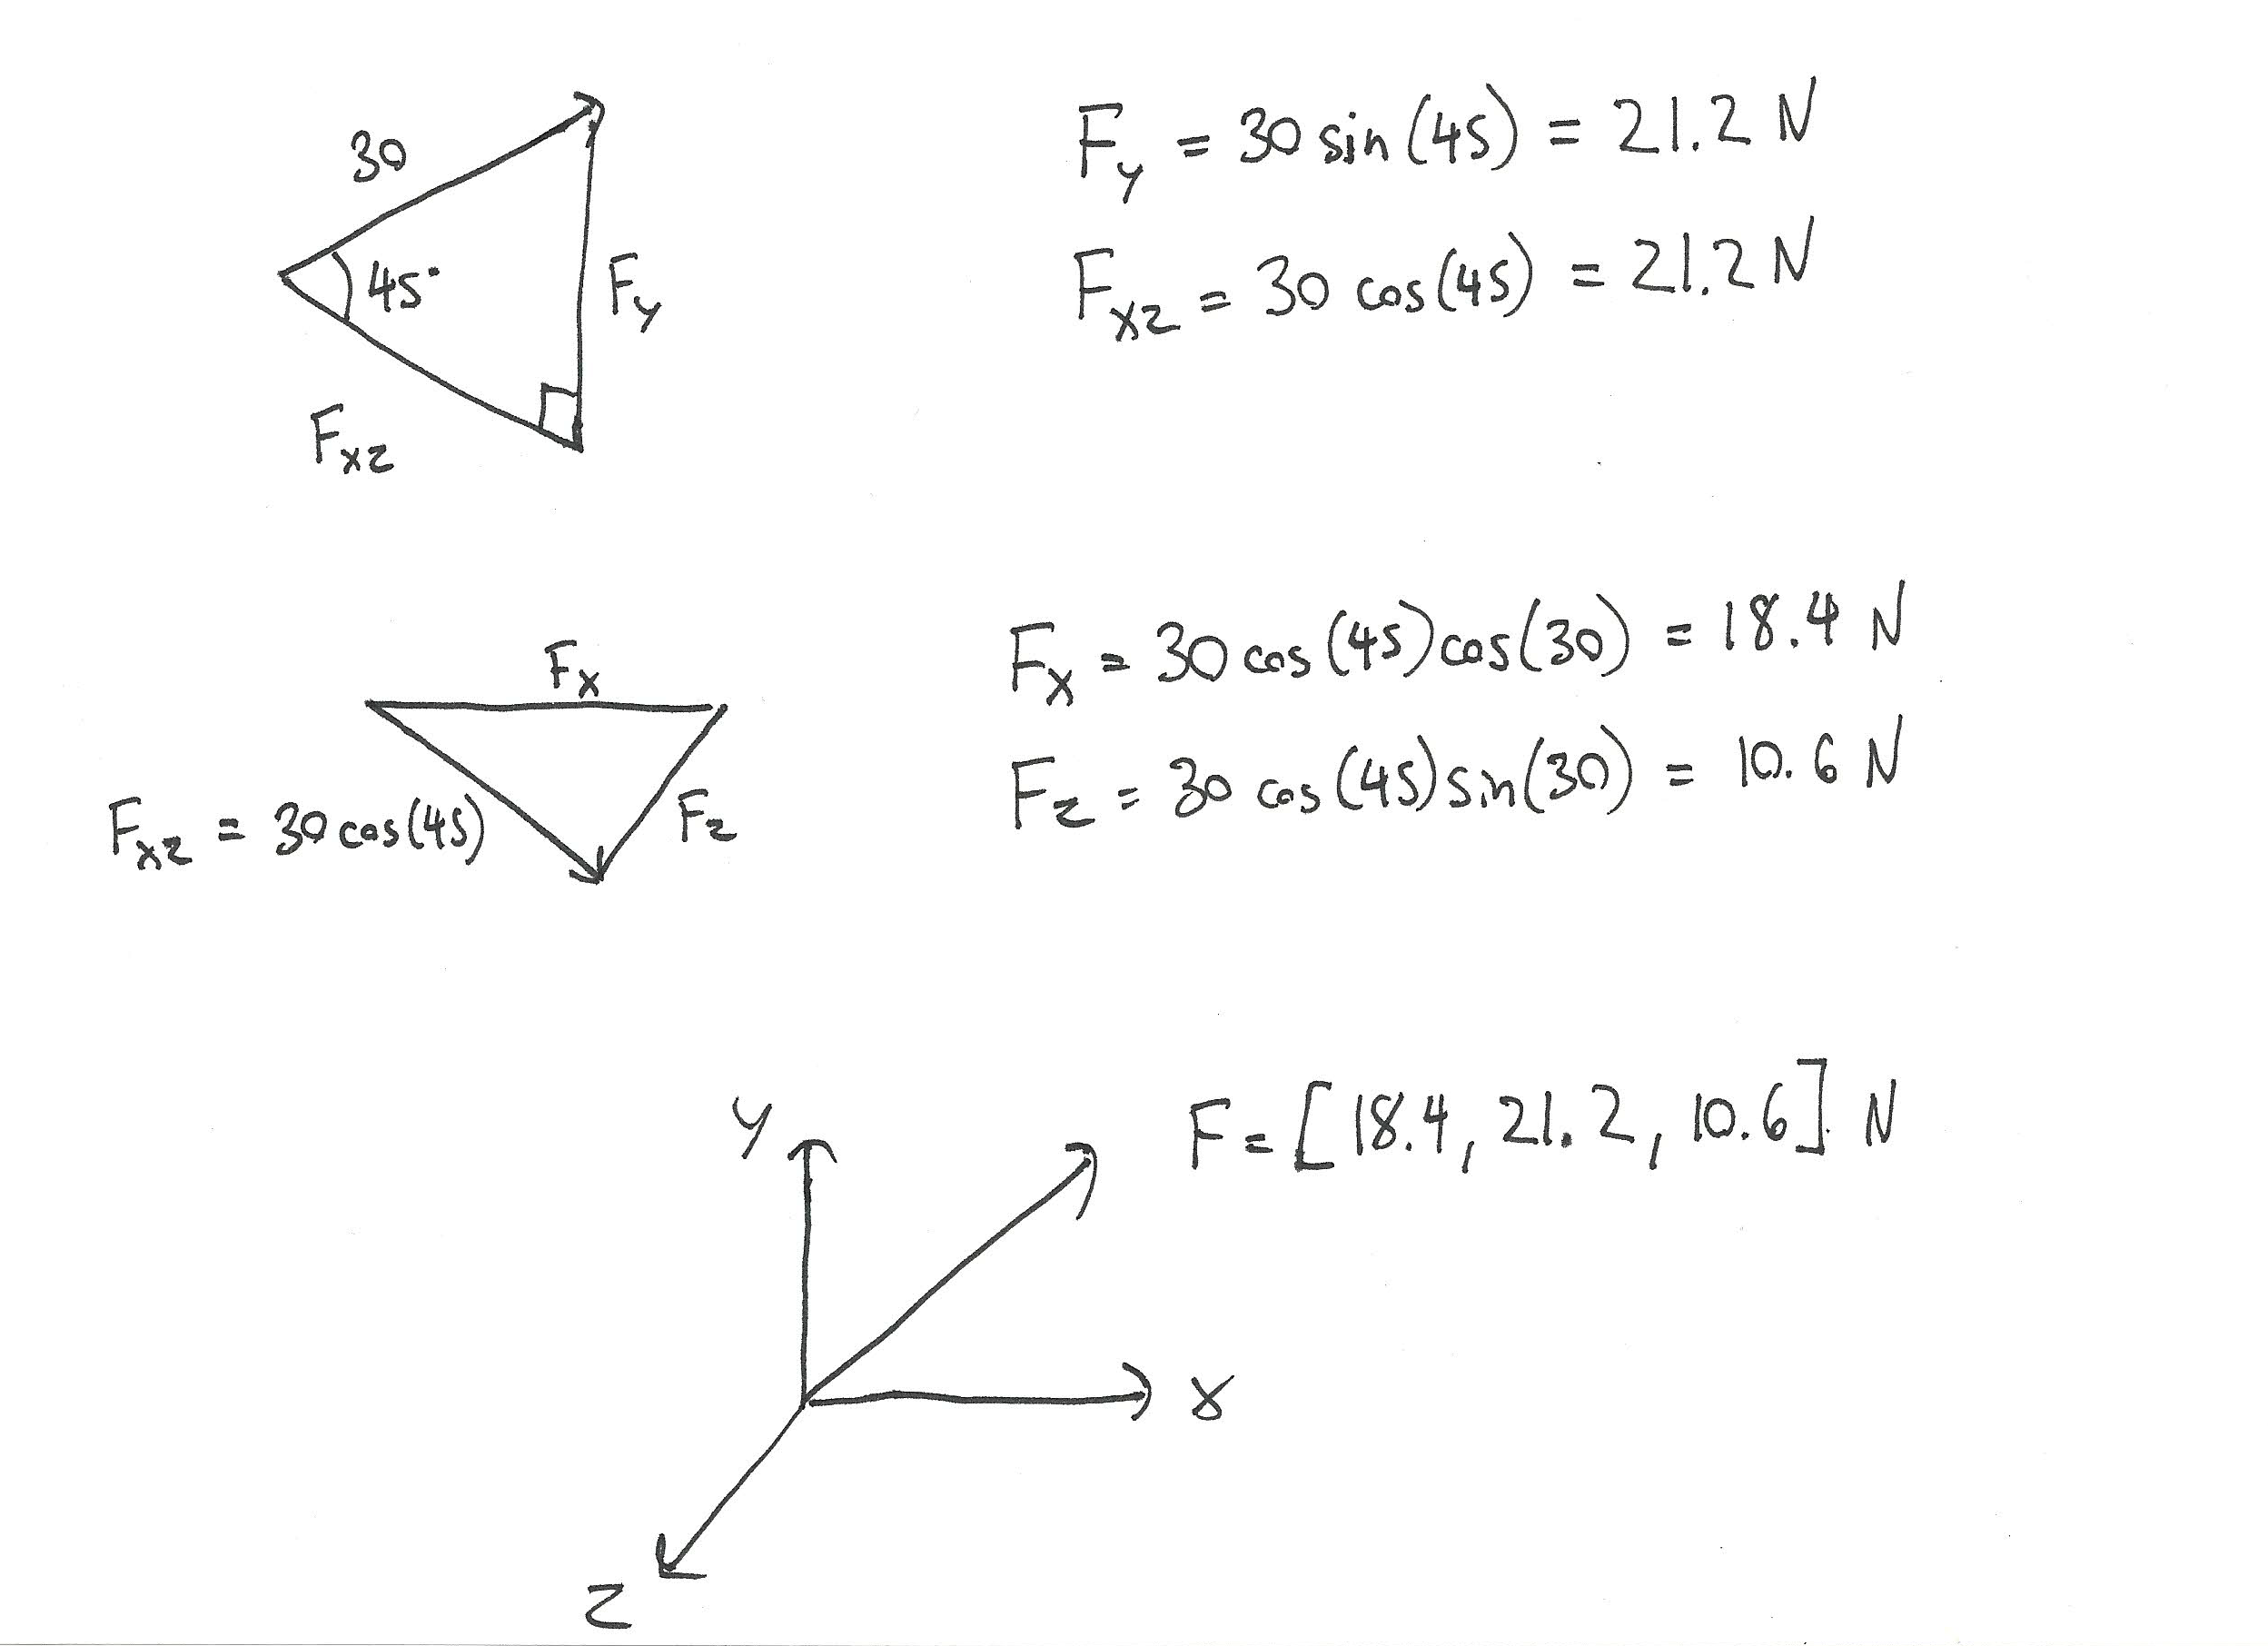 30
45°
F_y
F_xz
F_y = 30 sin(45) = 21.2 N
F_xz = 30 cos(45) = 21.2 N
F_x
F_xz = 30 cos(45)
F_z
F_x = 30 cos(45)cos(30) = 18.4 N
F_z = 30 cos(45)sin(30) = 10.6 N
y
F = [18.4, 21.2, 10.6] N
x
z